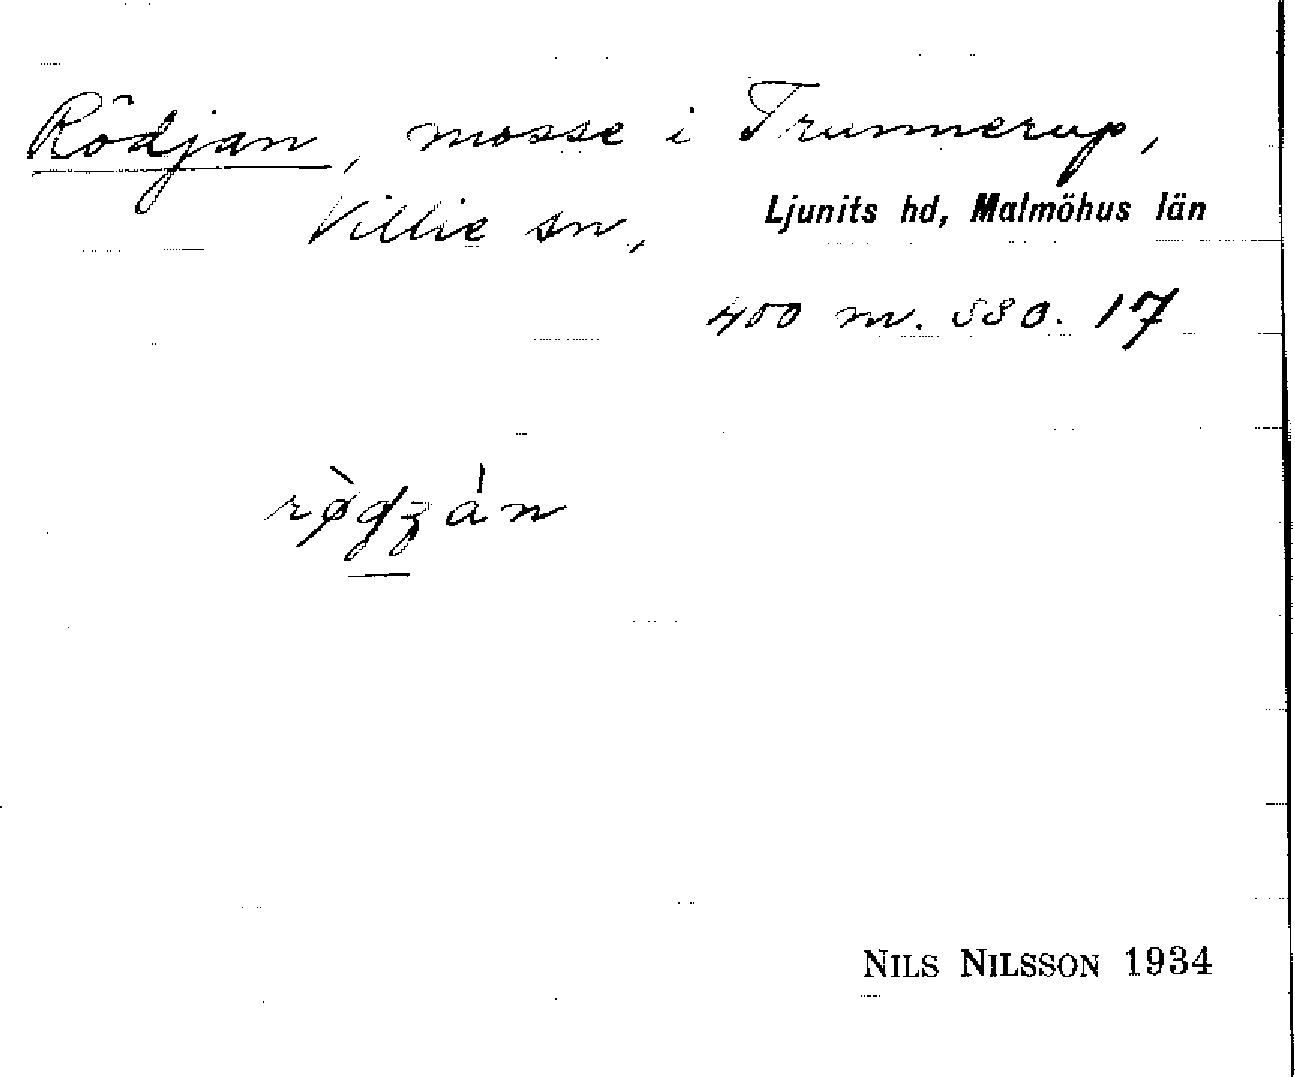 Rödjan, mosse i Trunnerup,
Villie sn, Ljunits hd, Malmöhus län
400 m. SSO. 17
rø̀dʒán
NILS NILSSON 1934